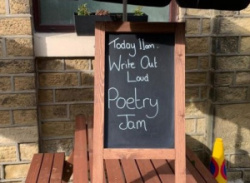 Today 11am.
Write Out
Loud
Poetry
Jam